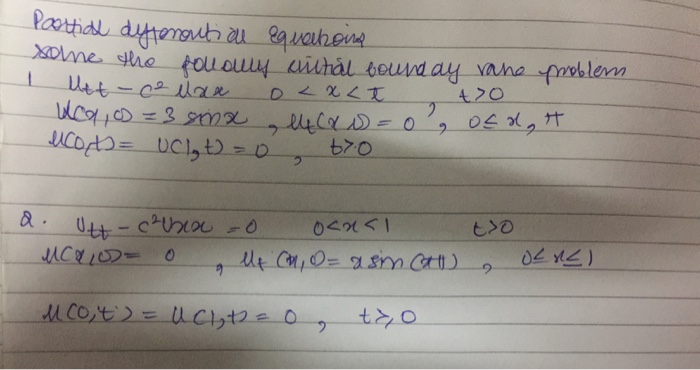 Partial differential Equations
solve the following initial bounday value problem
1 Utt - c² Uxx 0 < x < π, t>0
U(x,0) = 3 sinx, Ut(x,0) = 0, 0≤ x, π
U(0,t)= U(1,t) = 0, t>0
2. Utt - c²Uxx = 0 0<x<1 t>0
U(x,0)= 0, Ut (x,0= x sin(πx), 0≤x≤1
U(0,t) = U(1,t) = 0, t≥0